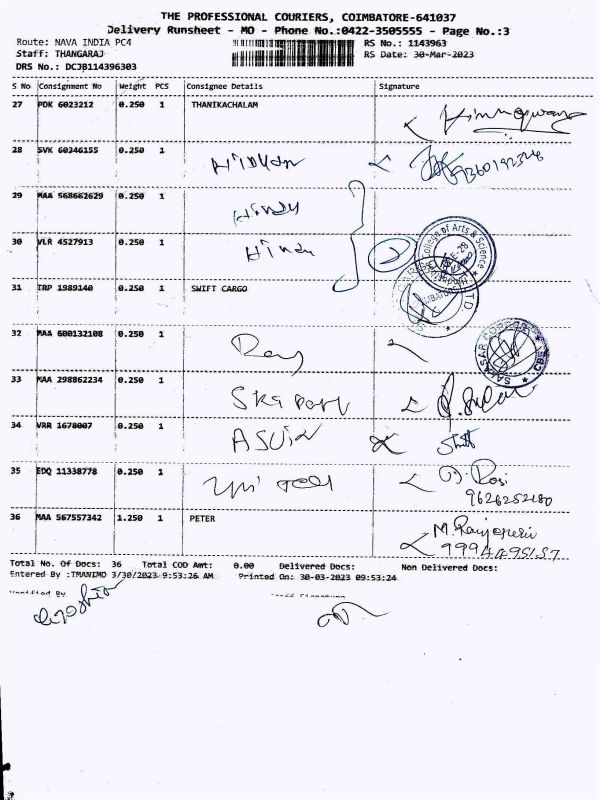 THE PROFESSIONAL COURIERS, COIMBATORE-641037
Delivery Runsheet - MO - Phone No.:0422-3505555 - Page No.:3
Route: NAVA INDIA PC4 RS No.: 1143963
Staff: THANGARAJ RS Date: 30-Mar-2023
DRS No.: DCJB114396303
S No Consignment No Weight PCS Consignee Details Signature
27 PDK 6023212 0.250 1 THANIKACHALAM
28 SVK 60346155 0.250 1 Hindun
29 MAA 568662629 0.250 1 Hindu
30 VLR 4527913 0.250 1 Hindu
College of Arts & Science
31 TRP 1989140 0.250 1 SWIFT CARGO
32 MAA 600132108 0.250 1 Roy
33 MAA 298862234 0.250 1
34 VRR 1678007 0.250 1 ASUIN
35 EDQ 11338778 0.250 1
9626252180
36 MAA 567557342 1.250 1 PETER
Total No. Of Docs: 36 Total COD Amt: 0.00 Delivered Docs: Non Delivered Docs:
Entered By :TMANIMO 3/30/2023 9:53:26 AM Printed On: 30-03-2023 09:53:24
Verified By Staff Signature